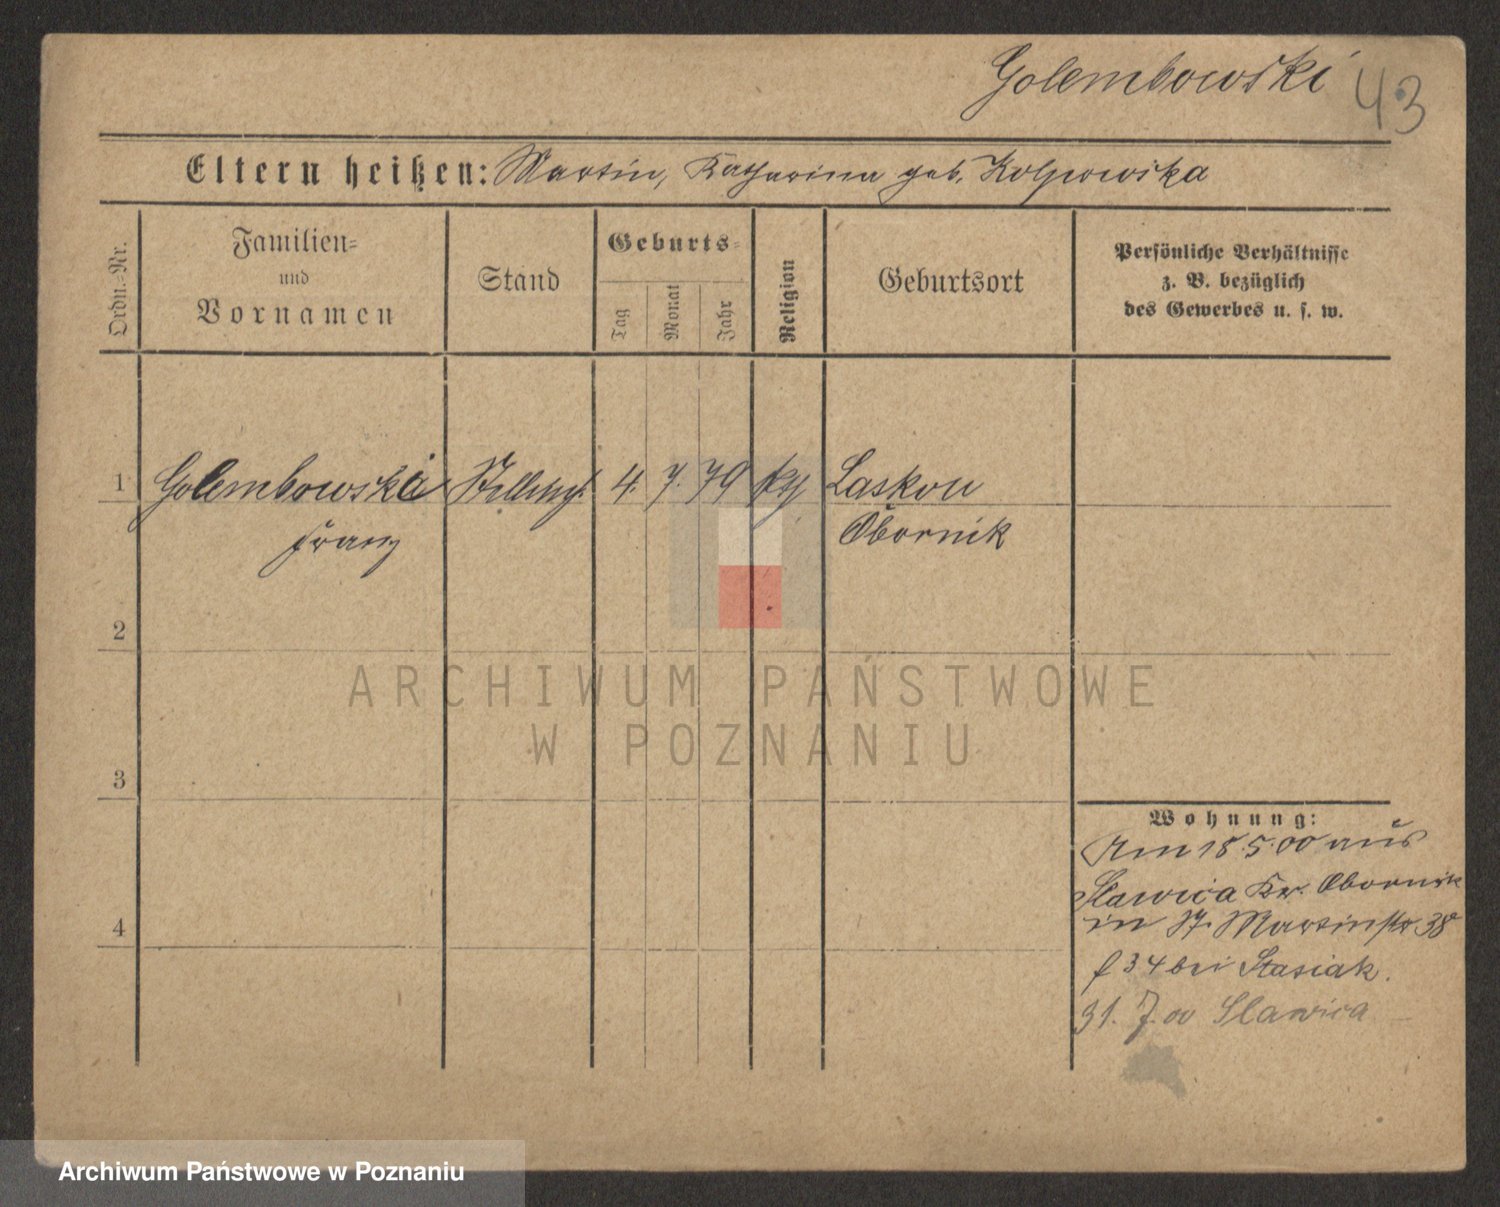 Golembowski 43
Eltern heißen: Martin, Katharina geb.
Ordn.-Nr.
Familien-
und
Vornamen
Stand
Geburts-
Tag
Monat
Jahr
Religion
Geburtsort
Persönliche Verhältnisse
z. B. bezüglich
des Gewerbes u. s. w.
1 Golembowski 4. 7. 79 kth Laskon
Franz Obornik
2
3
4
Wohnung:
Am 18.5.00 aus
Slawica Kr. Obornik
in St. Martinstr 38
f 34 bei Stasiak.
31. 7. 00 Slawica
ARCHIWUM PAŃSTWOWE
W POZNANIU
Archiwum Państwowe w Poznaniu